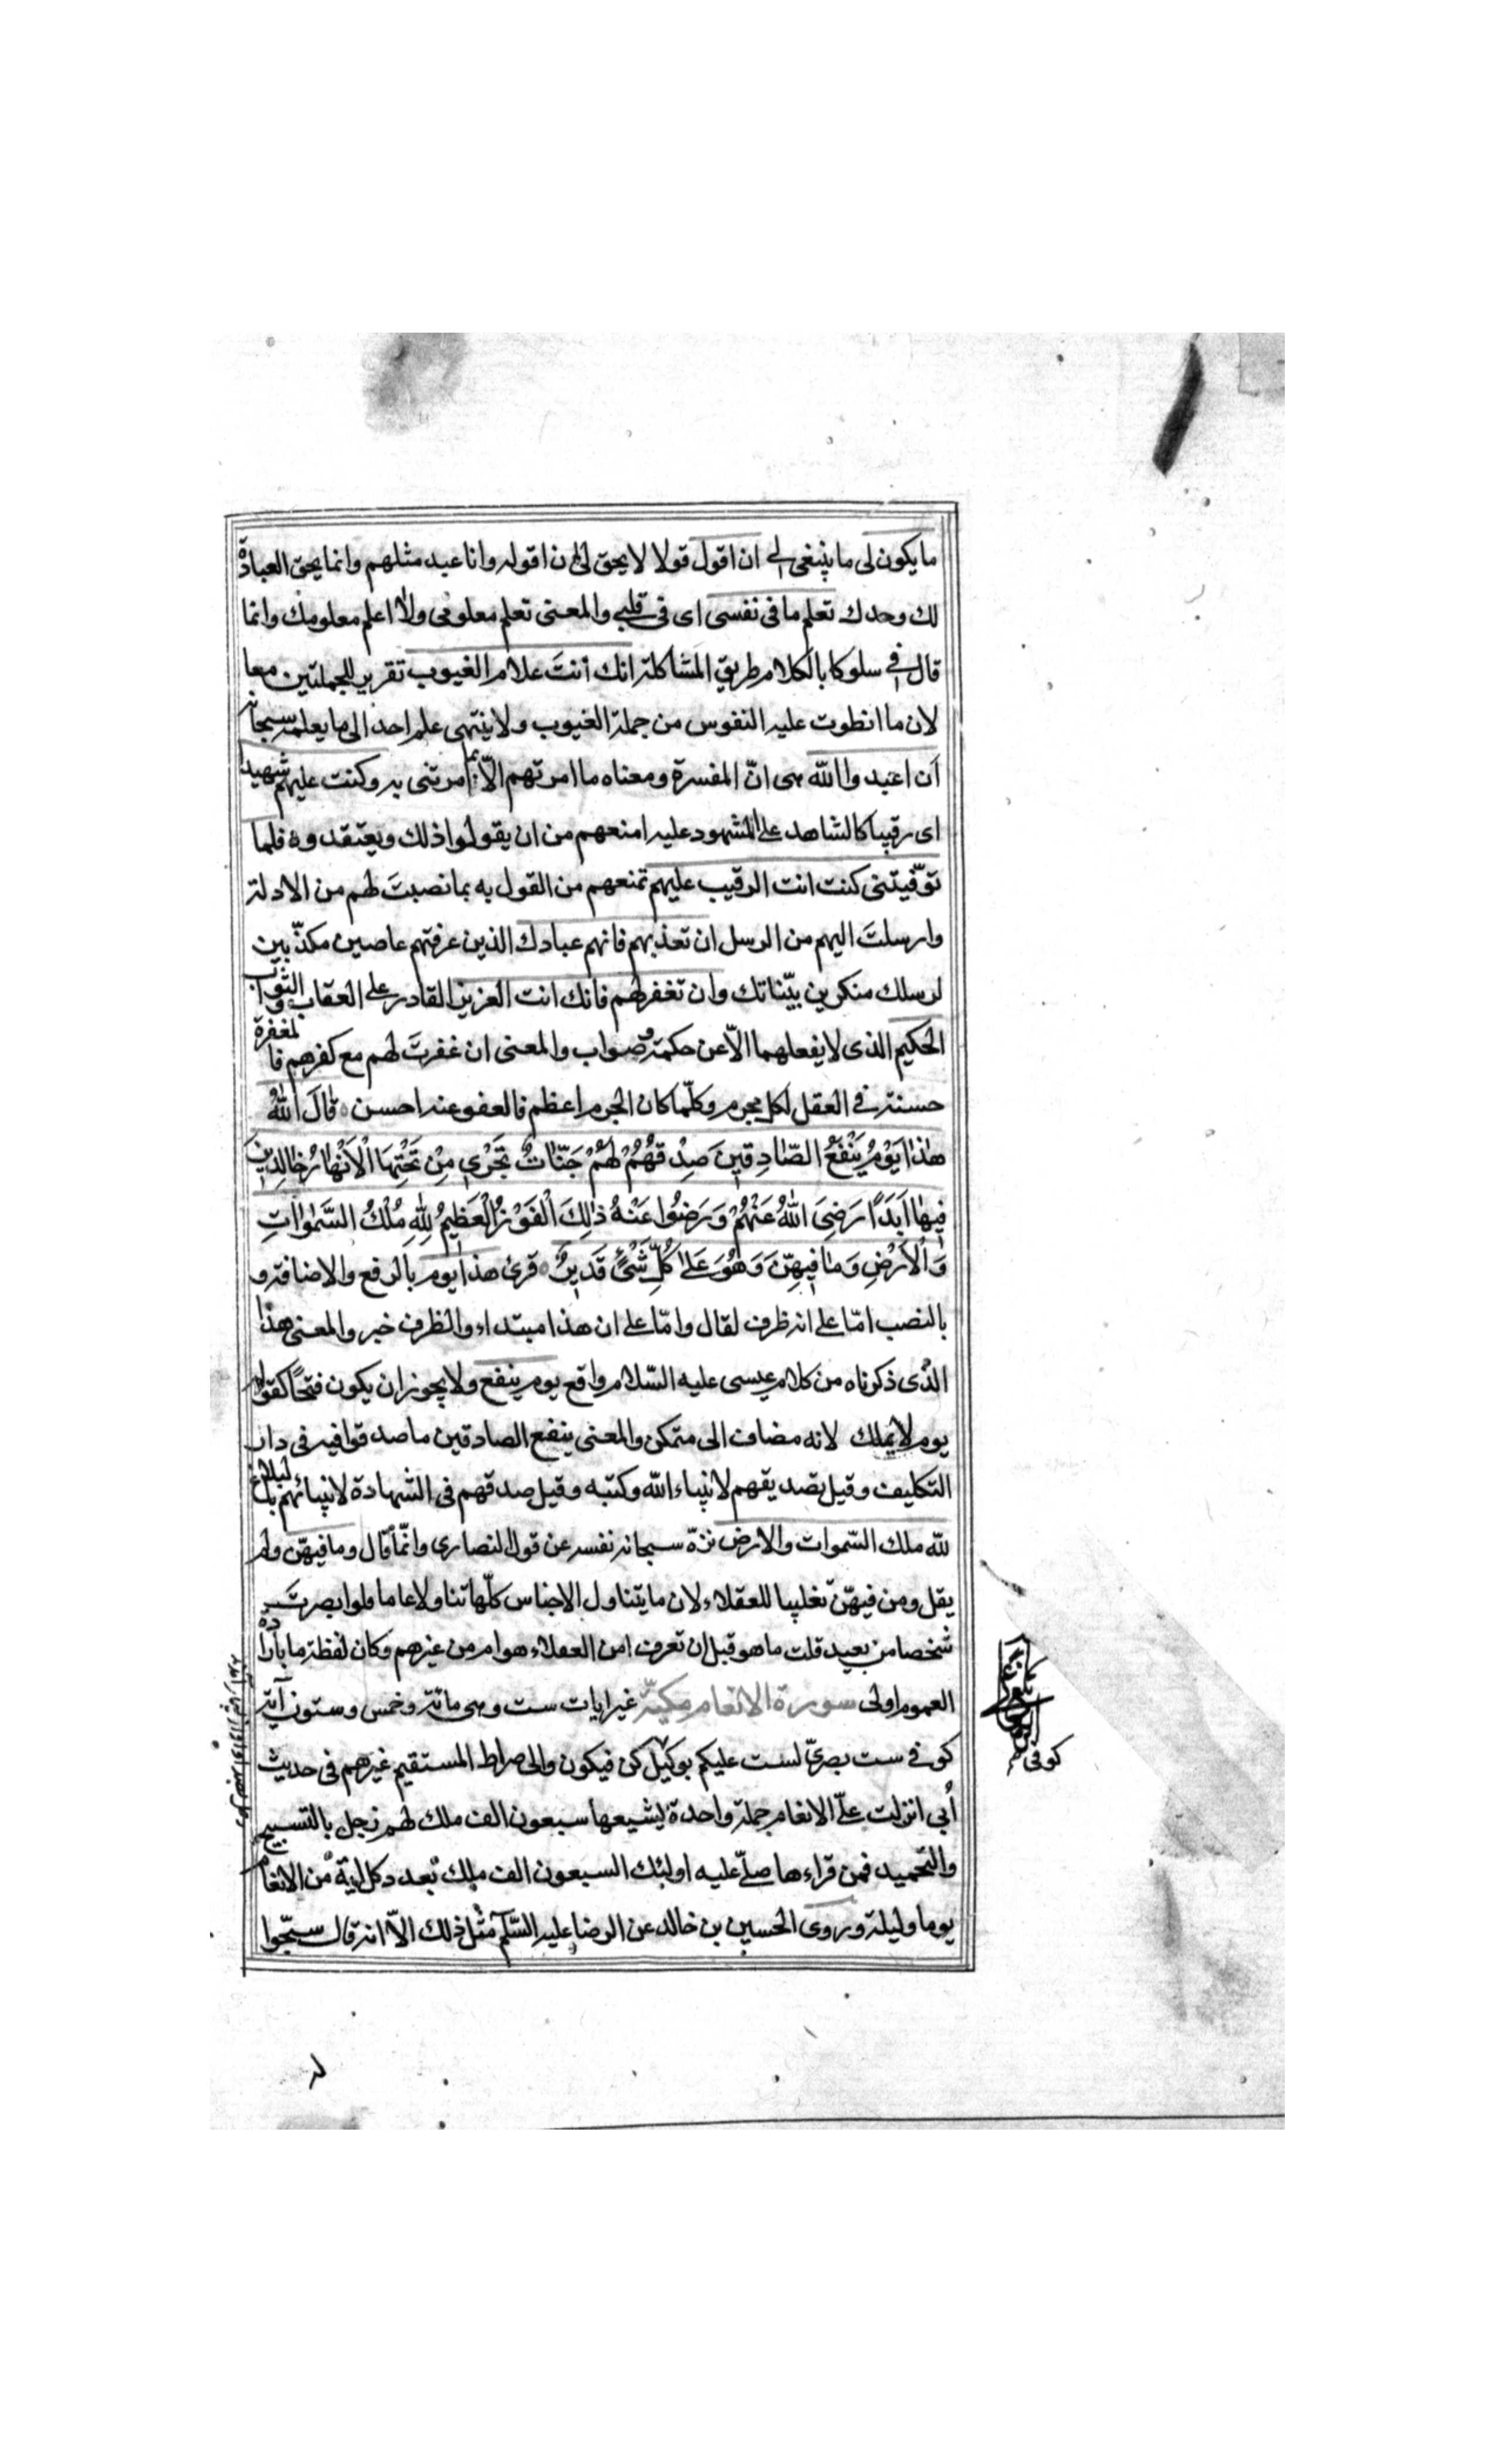 ما يكون لى ما ينبغى لى ان اقول قولا لا يحق لى ن اقوله وانا عبد مثلهم وانما يحق العبادة
لك وحدك تعلم ما فى نفسى اى فى قلبى والمعنى تعلم معلومى ولا اعلم معلومك وانما
قال فى سلوكا بالكلام طريق المشاكلة انك أنتَ علام الغيوب تقرير للجملتين معا
لان ما انطوت عليه النفوس من جملة الغيوب ولا ينتهى علم احد الى ما يعلمه سبحانه
ان اعبدوا الله هى انّ المفسرة ومعناه ما امرتهم الّا بما امرتنى به وكنت عليهم شهيدا
اى رقيبا كالشاهد على المشهود عليه امنعهم من ان يقولوا ذلك ويعتقدوه فلما
توفّيتنى كنت انت الرقيب عليهم تمنعهم من القول به بما نصبتَ لهم من الادلة
وارسلتَ اليهم من الرسل ان تعذبهم فانهم عبادك الذين عرفتهم عاصين مكذّبين
لرسلك منكرين بيّناتك وان تغفر لهم فانك انت العزيز القادر على العقاب والثواب
الحكيم الذى لا يفعلهما الّا عن حكمة وصواب والمعنى ان غفرتَ لهم مع كفرهم فالمغفرة
حسنة فى العقل لكل مجرم وكلّما كان الجرم اعظم فالعفو عنه احسن ه قَالَ اللّٰهُ
هٰذَا يَوْمُ يَنْفَعُ الصَّادِقِينَ صِدْقُهُمْ لَهُمْ جَنَّاتٌ تَجْرِي مِنْ تَحْتِهَا الْاَنْهَارُ خَالِدِينَ
فِيهَا اَبَدًا رَضِىَ اللّٰهُ عَنْهُمْ وَرَضُوا عَنْهُ ذٰلِكَ الْفَوْزُ الْعَظِيمُ لِلّٰهِ مُلْكُ السَّمٰوَاتِ
وَالْاَرْضِ وَمَا فِيهِنَّ وَهُوَ عَلٰى كُلِّ شَىْءٍ قَدِيرٌ ه قرئ هذا يوم بالرفع والاضافة و
بالنصب امّا على انه ظرف لقال وامّا على ان هذا مبتداء والظرف خبر والمعنى هذا
الذى ذكرناه من كلام عيسى عليه السّلام واقع يوم ينفع ولا يجوز ان يكون فتحًا كقوله
يوم لا يملك لانه مضاف الى متمكن والمعنى ينفع الصادقين ما صدقوا فيه فى دار
التكليف وقيل بصديقهم لانبياء الله وكتبه وقيل صدقهم فى الشهادة لانبيائهم بالبلاغ
للّه ملك السّموات والارض نزّه سبحانه نفسه عن قول النصارى وانّما قال وما فيهنّ ولم
يقل ومن فيهنّ تغليبا للعقلاء لان ما يتناول الاجناس كلّها تناولا عاما ولو ابصرتَ
شخصا من بعيد قلت ما هو قبل ان تعرف امن العقلاء هو ام من غيرهم وكان لفظة ما بارادة
العموم اولى سورة الانعام مكيّة غير ايات ست وهى مائة وخمس وستون آية
كوفى ست بصرىّ لست عليكم بوكيل كن فيكون والى صراط المستقيم غيرهم فى حديث
أبى انزلت علىّ الانعام جملة واحدة يشيعها سبعون الف ملك لهم زجل بالتسبيح
والتحميد فمن قراءها صلّى عليه اولئك السبعون الف ملك بعدد كل اية من الانعام
يوما وليلة وروى الحسين بن خالد عن الرضا عليه السّلام مثل ذلك الّا انه قال سبّحوا
كوفى